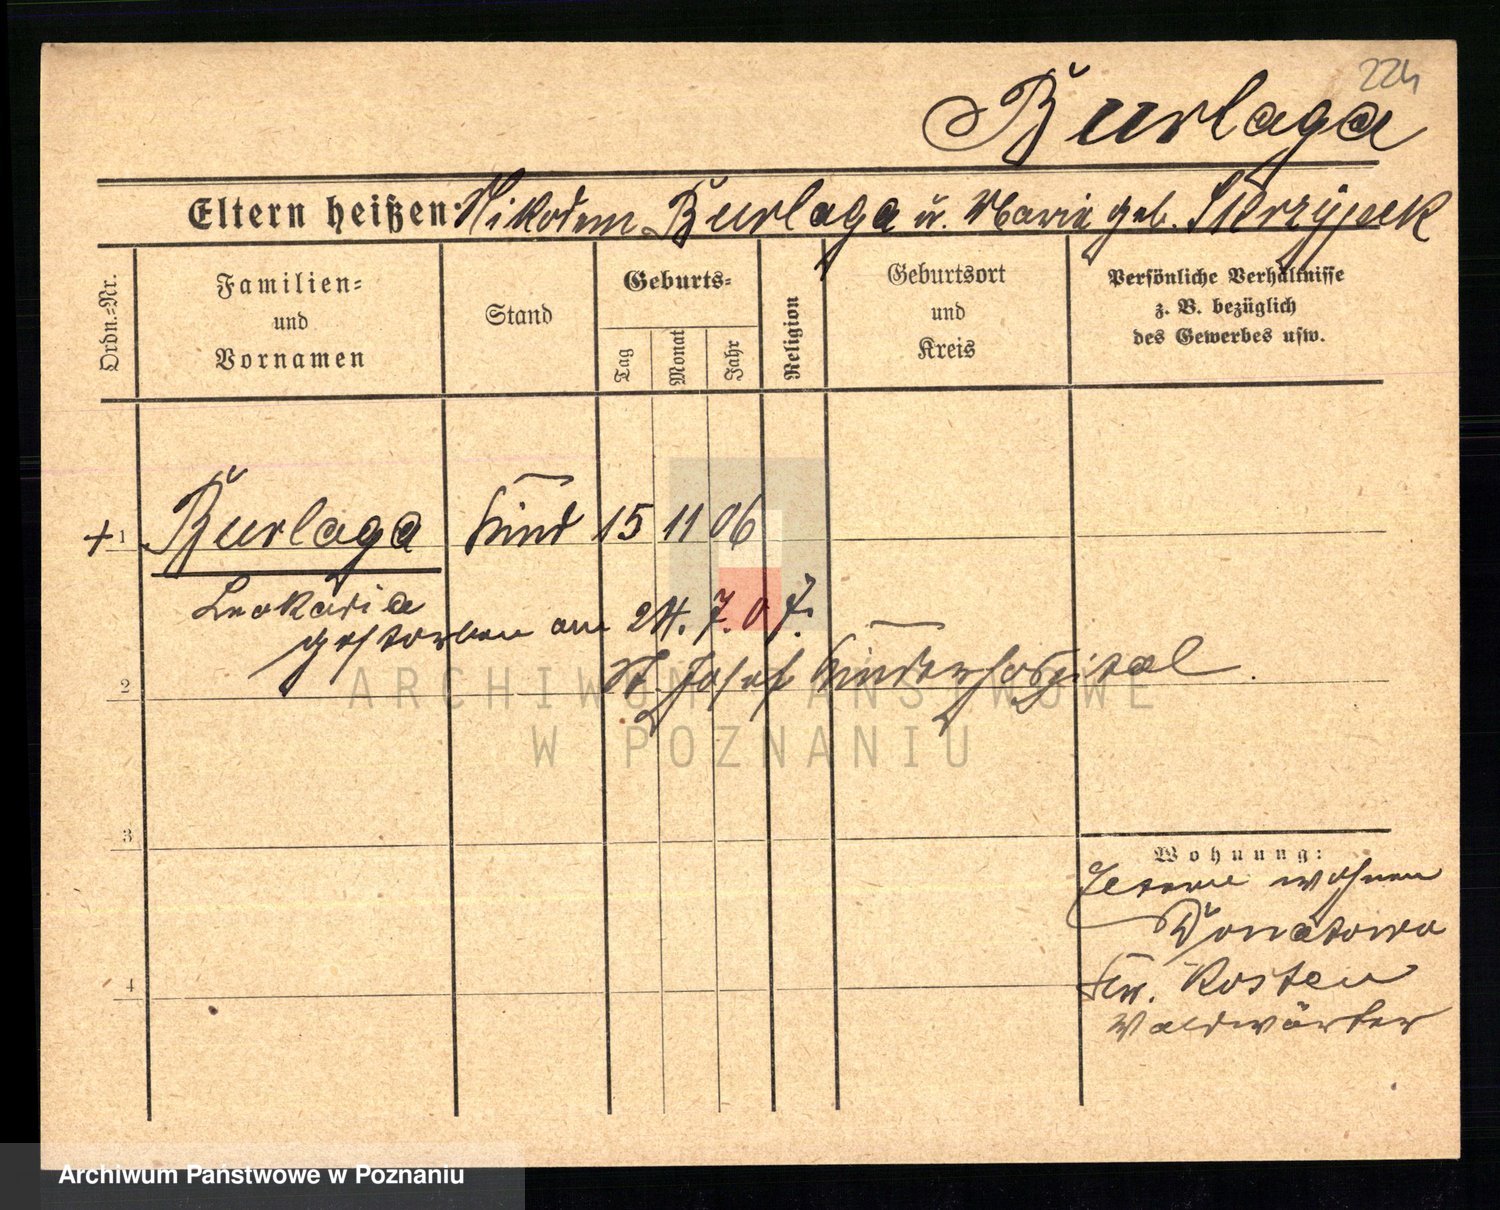 224
Burlaga
Eltern heißen: Nikodem Burlaga u. Marie geb. Skrzypek
Ordn.-Nr.
Familien-
und
Vornamen
Stand
Geburts-
Tag
Monat
Jahr
Religion
Geburtsort
und
Kreis
Persönliche Verhältnisse
z. B. bezüglich
des Gewerbes usw.
+ 1 Burlaga Kind 15 11 06
Leokadia
gestorben am 24. 7. 07.
2 St. Josef Kinderhospital.
3
Wohnung:
Eltern wohnen
Donatowo
4 Krs. Kosten
Waldwärter
ARCHIWUM PAŃSTWOWE
W POZNANIU
Archiwum Państwowe w Poznaniu